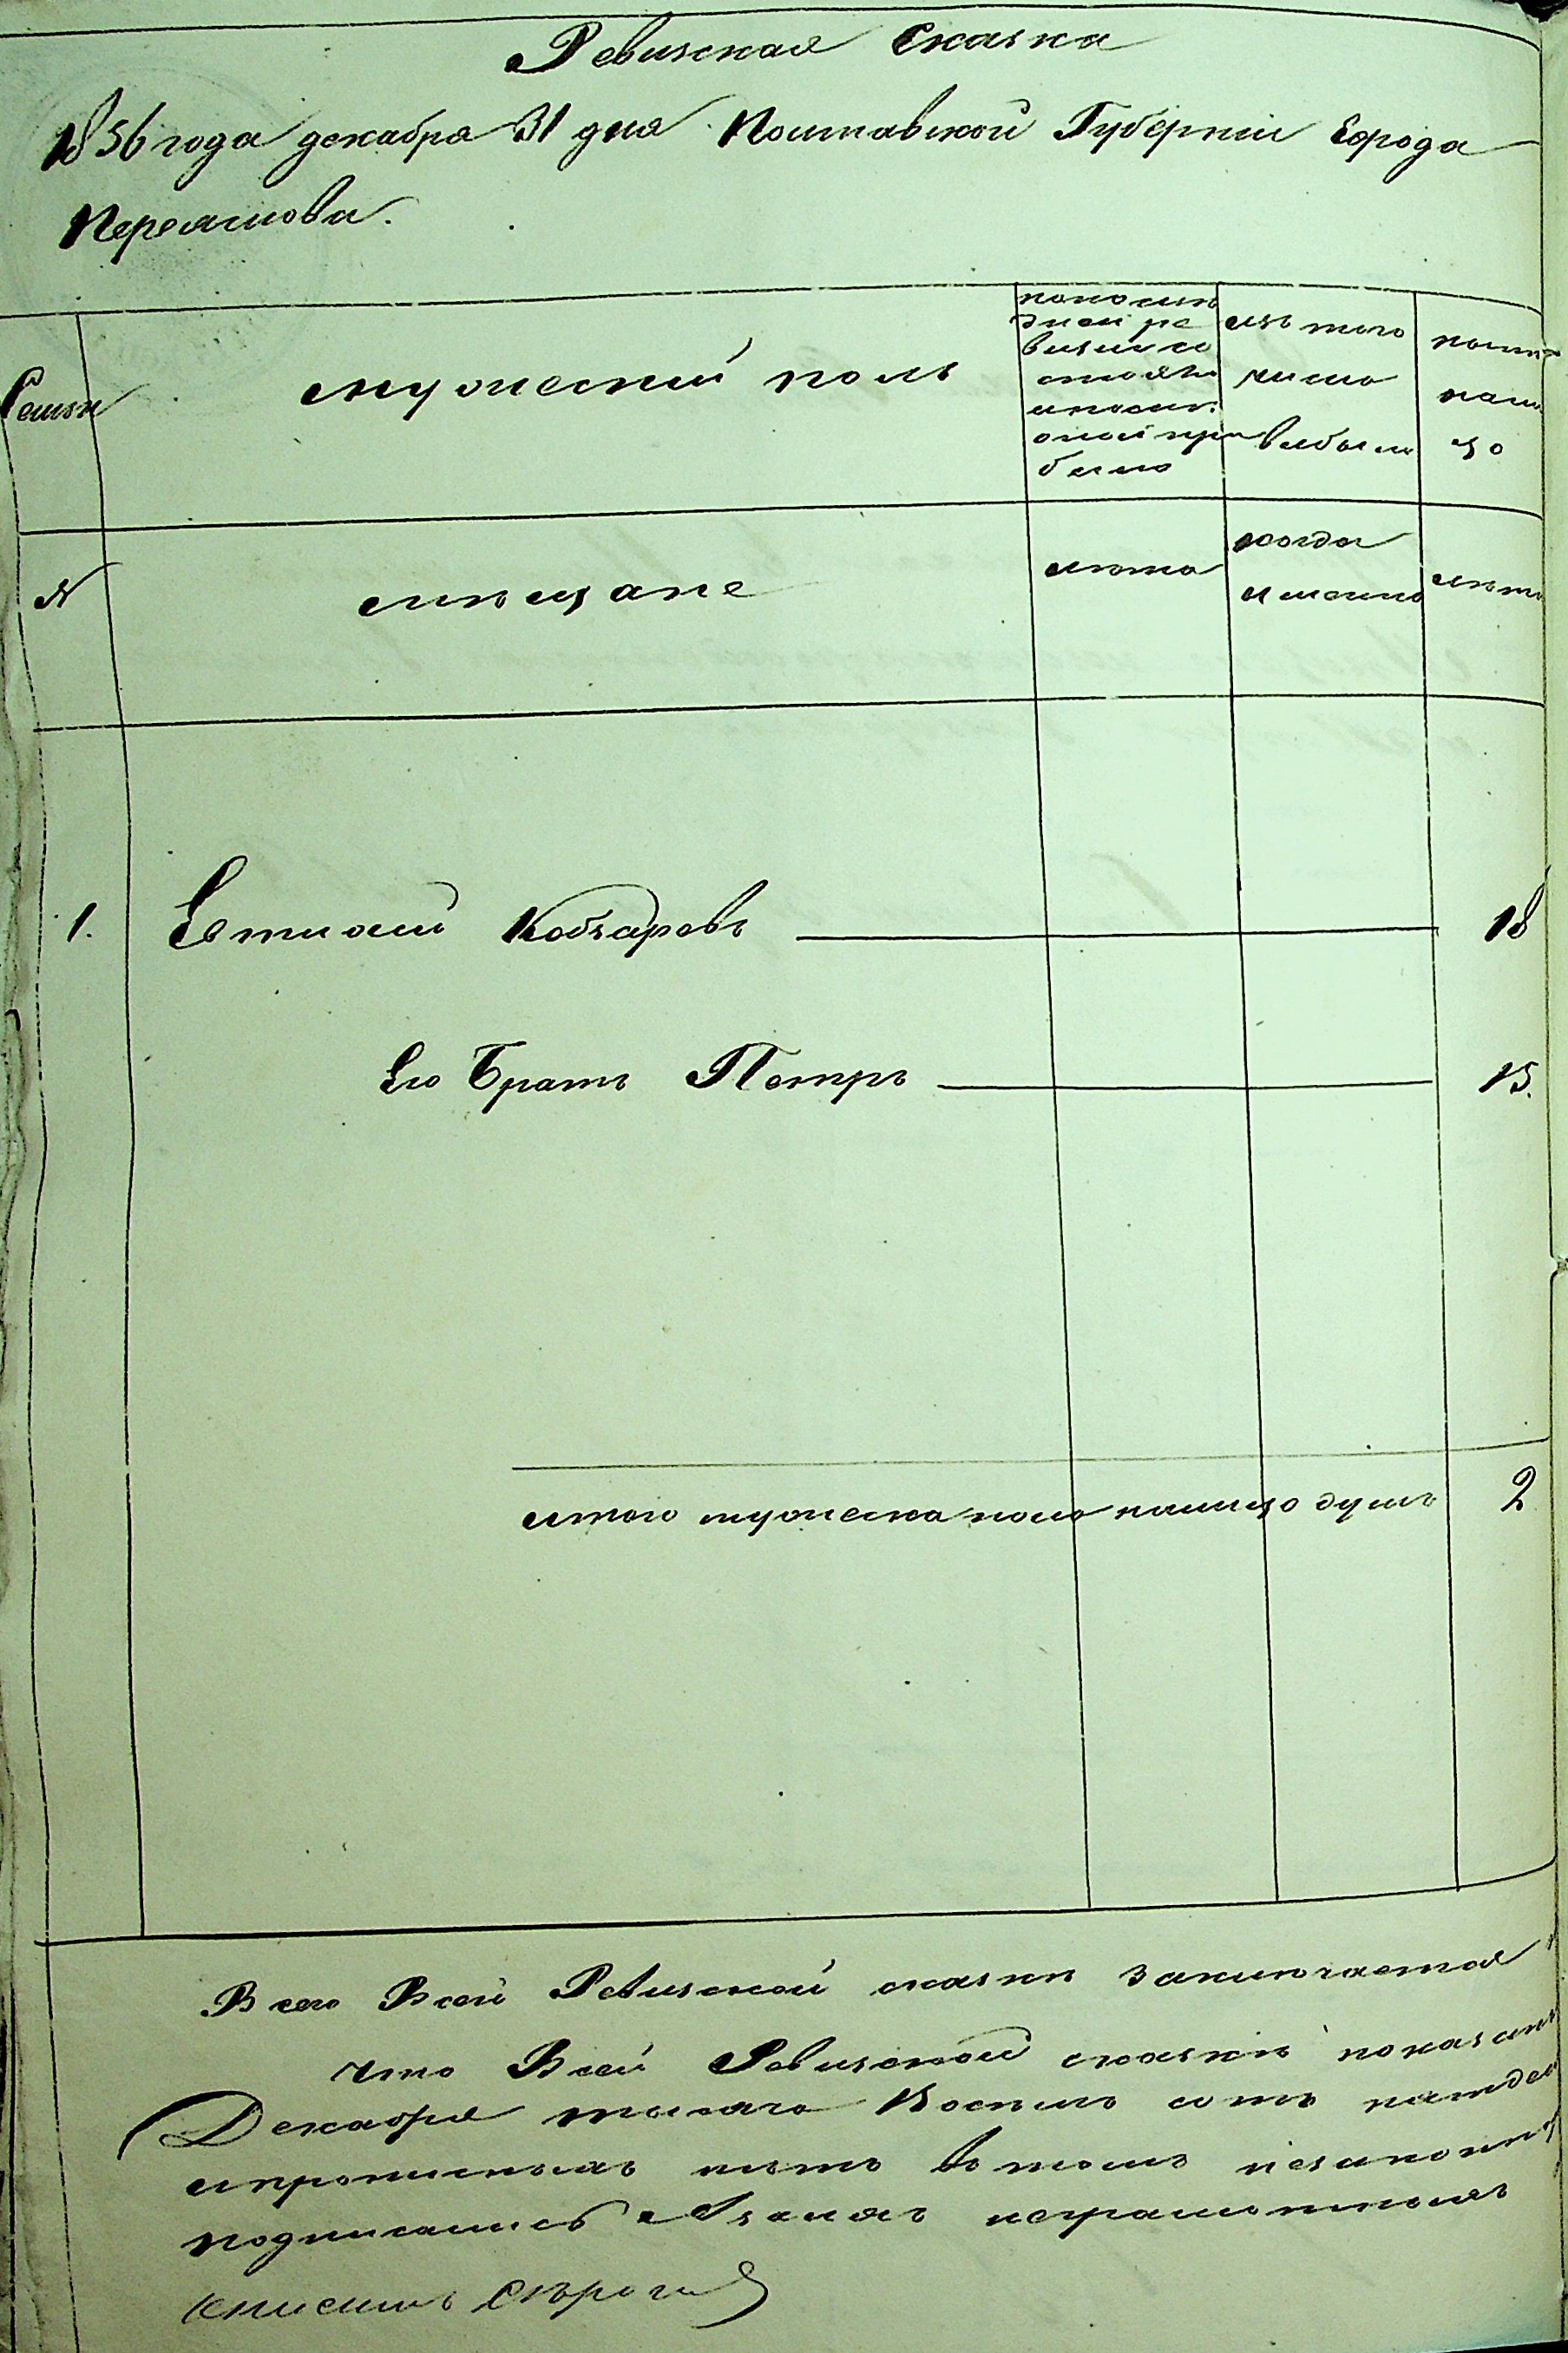 Ревизская Сказка
1856 года декабря 31 дня Полтавской Губерніи Города
Переяслова.
Семьи
мужескій полъ
по послѣ
дней ре
визіи со
стояло
и после
оной при
было
изъ того
числа
выбыло
ныне
нали
цо
№
мѣщане
лѣта
когда
именно
лѣта
1. Евтихій Кобзаревъ 18
Его Братъ Петръ 15.
итого мужеска пола налицо душъ 2
Всего Всей Ревизской сказки заключается
что Всей Ревизской сказкѣ показан
Декабря тысяча Восемь сотъ пятдес
и прописныхъ нѣтъ въ томъ
подписались неграмотныхъ